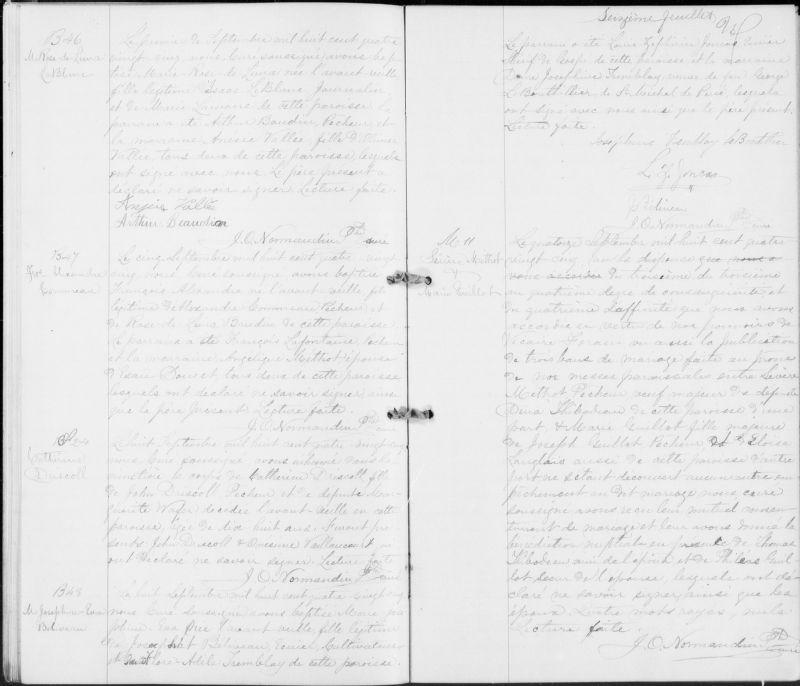 B46
M. Rose de Lima
LeBlanc
Le premier de Septembre mil huit cent quatre
vingt cinq, nous Curé soussigné avons bap
tisé Marie Rose de Lima née l'avant veille
fille légitime LeBlanc, Journalier
et de Marie de cette paroisse Le
parrain a été Arthur Beaudin, Pêcheur et
la marraine Anésie Vallée, fille d'
Vallée, tous deux de cette paroisse, lesquels
ont signé avec nous. Le père présent a
déclaré ne savoir signer. Lecture faite.
Anésie Vallée
Arthur Beaudin
J. O. Normandin Ptre Curé
B47
Alexandre
Commeau
Le cinq Septembre mil huit cent quatre vingt
cinq, nous Curé soussigné, avons baptisé
Alexandre né l'avant veille fils
légitime d'Alexandre Commeau Pêcheur, et
de Rose de Lima Baudin de cette paroisse.
Le parrain a été François Lafontaine, Pêcheur
et la marraine, Angélique Methot épouse
d'Esaïe Doucet, tous deux de cette paroisse
lesquels ont déclaré ne savoir signer ainsi
que le père présent. Lecture faite.
J. O. Normandin Ptre Curé
Catherine
Driscoll
Le huit Septembre mil huit cent quatre vingt cinq
nous Curé soussigné avons inhumé dans le
cimetière le corps de Catherine Driscoll fille
de John Driscoll Pêcheur et de défunte Mar
guerite Wafer décédée l'avant veille en cette
paroisse, âgée de dix huit ans. Furent pré
sents John Driscoll & Onésime Vaillancourt qui
ont déclaré ne savoir signer. Lecture faite
J. O. Normandin Ptre Curé
B48
M. Josephine Eva
Béliveau
Le huit Septembre mil huit cent quatre vingt cinq
nous Curé soussigné avons baptisé Marie Jose
phine Eva née l'avant veille, fille légitime
de Joseph Béliveau, Cultivateur
et de Flore Adèle Tremblay de cette paroisse.
Seizième feuillet
Le parrain a été Louis Zéphirin Joncas, Ecuier
de Gaspé de cette paroisse et la marraine
Dame Josephine Tremblay, veuve de feu George
Le Bouthillier, de St Michel de Percé, lesquels
ont signé avec nous ainsi que le père présent.
Lecture faite.
Josephine Tremblay LeBouthillier
L. Z. Joncas
J. O. Normandin Ptre Curé
M 11
Sévère Methot
&
Marie Guillot
Le quatorze Septembre mil huit cent quatre
vingt cinq, vu la dispense que nous a
vons accordée du troisième du troisième
au quatrième degré de consanguinité, et
du quatrième d'affinité que nous avons
accordée en vertu de nos pouvoirs de
Vicaire Forain vu aussi la publication
de trois bans de mariage faite au prone
de nos messes paroissiales entre Sévère
Methot Pêcheur veuf majeur de défunte
Dina Thibodeau de cette paroisse d'une
part, & Marie Guillot fille majeure
de Joseph Guillot Pêcheur, & d'Eloise
Langlois aussi de cette paroisse d'autre
part ne s'étant découvert aucun autre em
pêchement au dit mariage nous curé
soussigné avons reçu leur mutuel consen
tement de mariage et leur avons donné la
bénédiction nuptiale en présence de Thomas
Thibodeau ami de l'époux et de Guil
lot soeur de l'épouse, lesquels ont dé
claré ne savoir signer ainsi que les
époux. mots rayés nuls.
Lecture faite.
J. O. Normandin Ptre
Curé